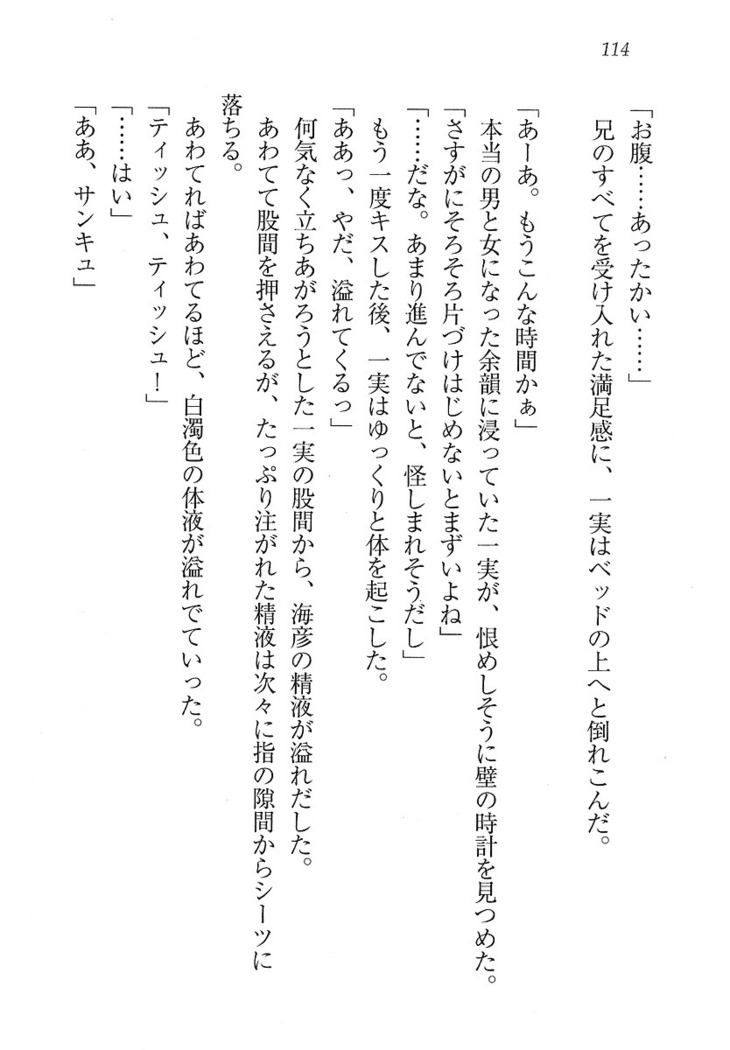 114
「お腹……あったかい……」
兄のすべてを受け入れた満足感に、一実はベッドの上へと倒れこんだ。
「あーあ。もうこんな時間かぁ」
本当の男と女になった余韻に浸っていた一実が、恨めしそうに壁の時計を見つめた。
「さすがにそろそろ片づけはじめないとまずいよね」
「……だな。あまり進んでないと、怪しまれそうだし」
もう一度キスした後、一実はゆっくりと体を起こした。
「ああっ、やだ、溢れてくるっ」
何気なく立ちあがろうとした一実の股間から、海彦の精液が溢れだした。
あわてて股間を押さえるが、たっぷり注がれた精液は次々に指の隙間からシーツに
落ちる。
あわてればあわてるほど、白濁色の体液が溢れでていった。
「ティッシュ、ティッシュ！」
「……はい」
「ああ、サンキュ」